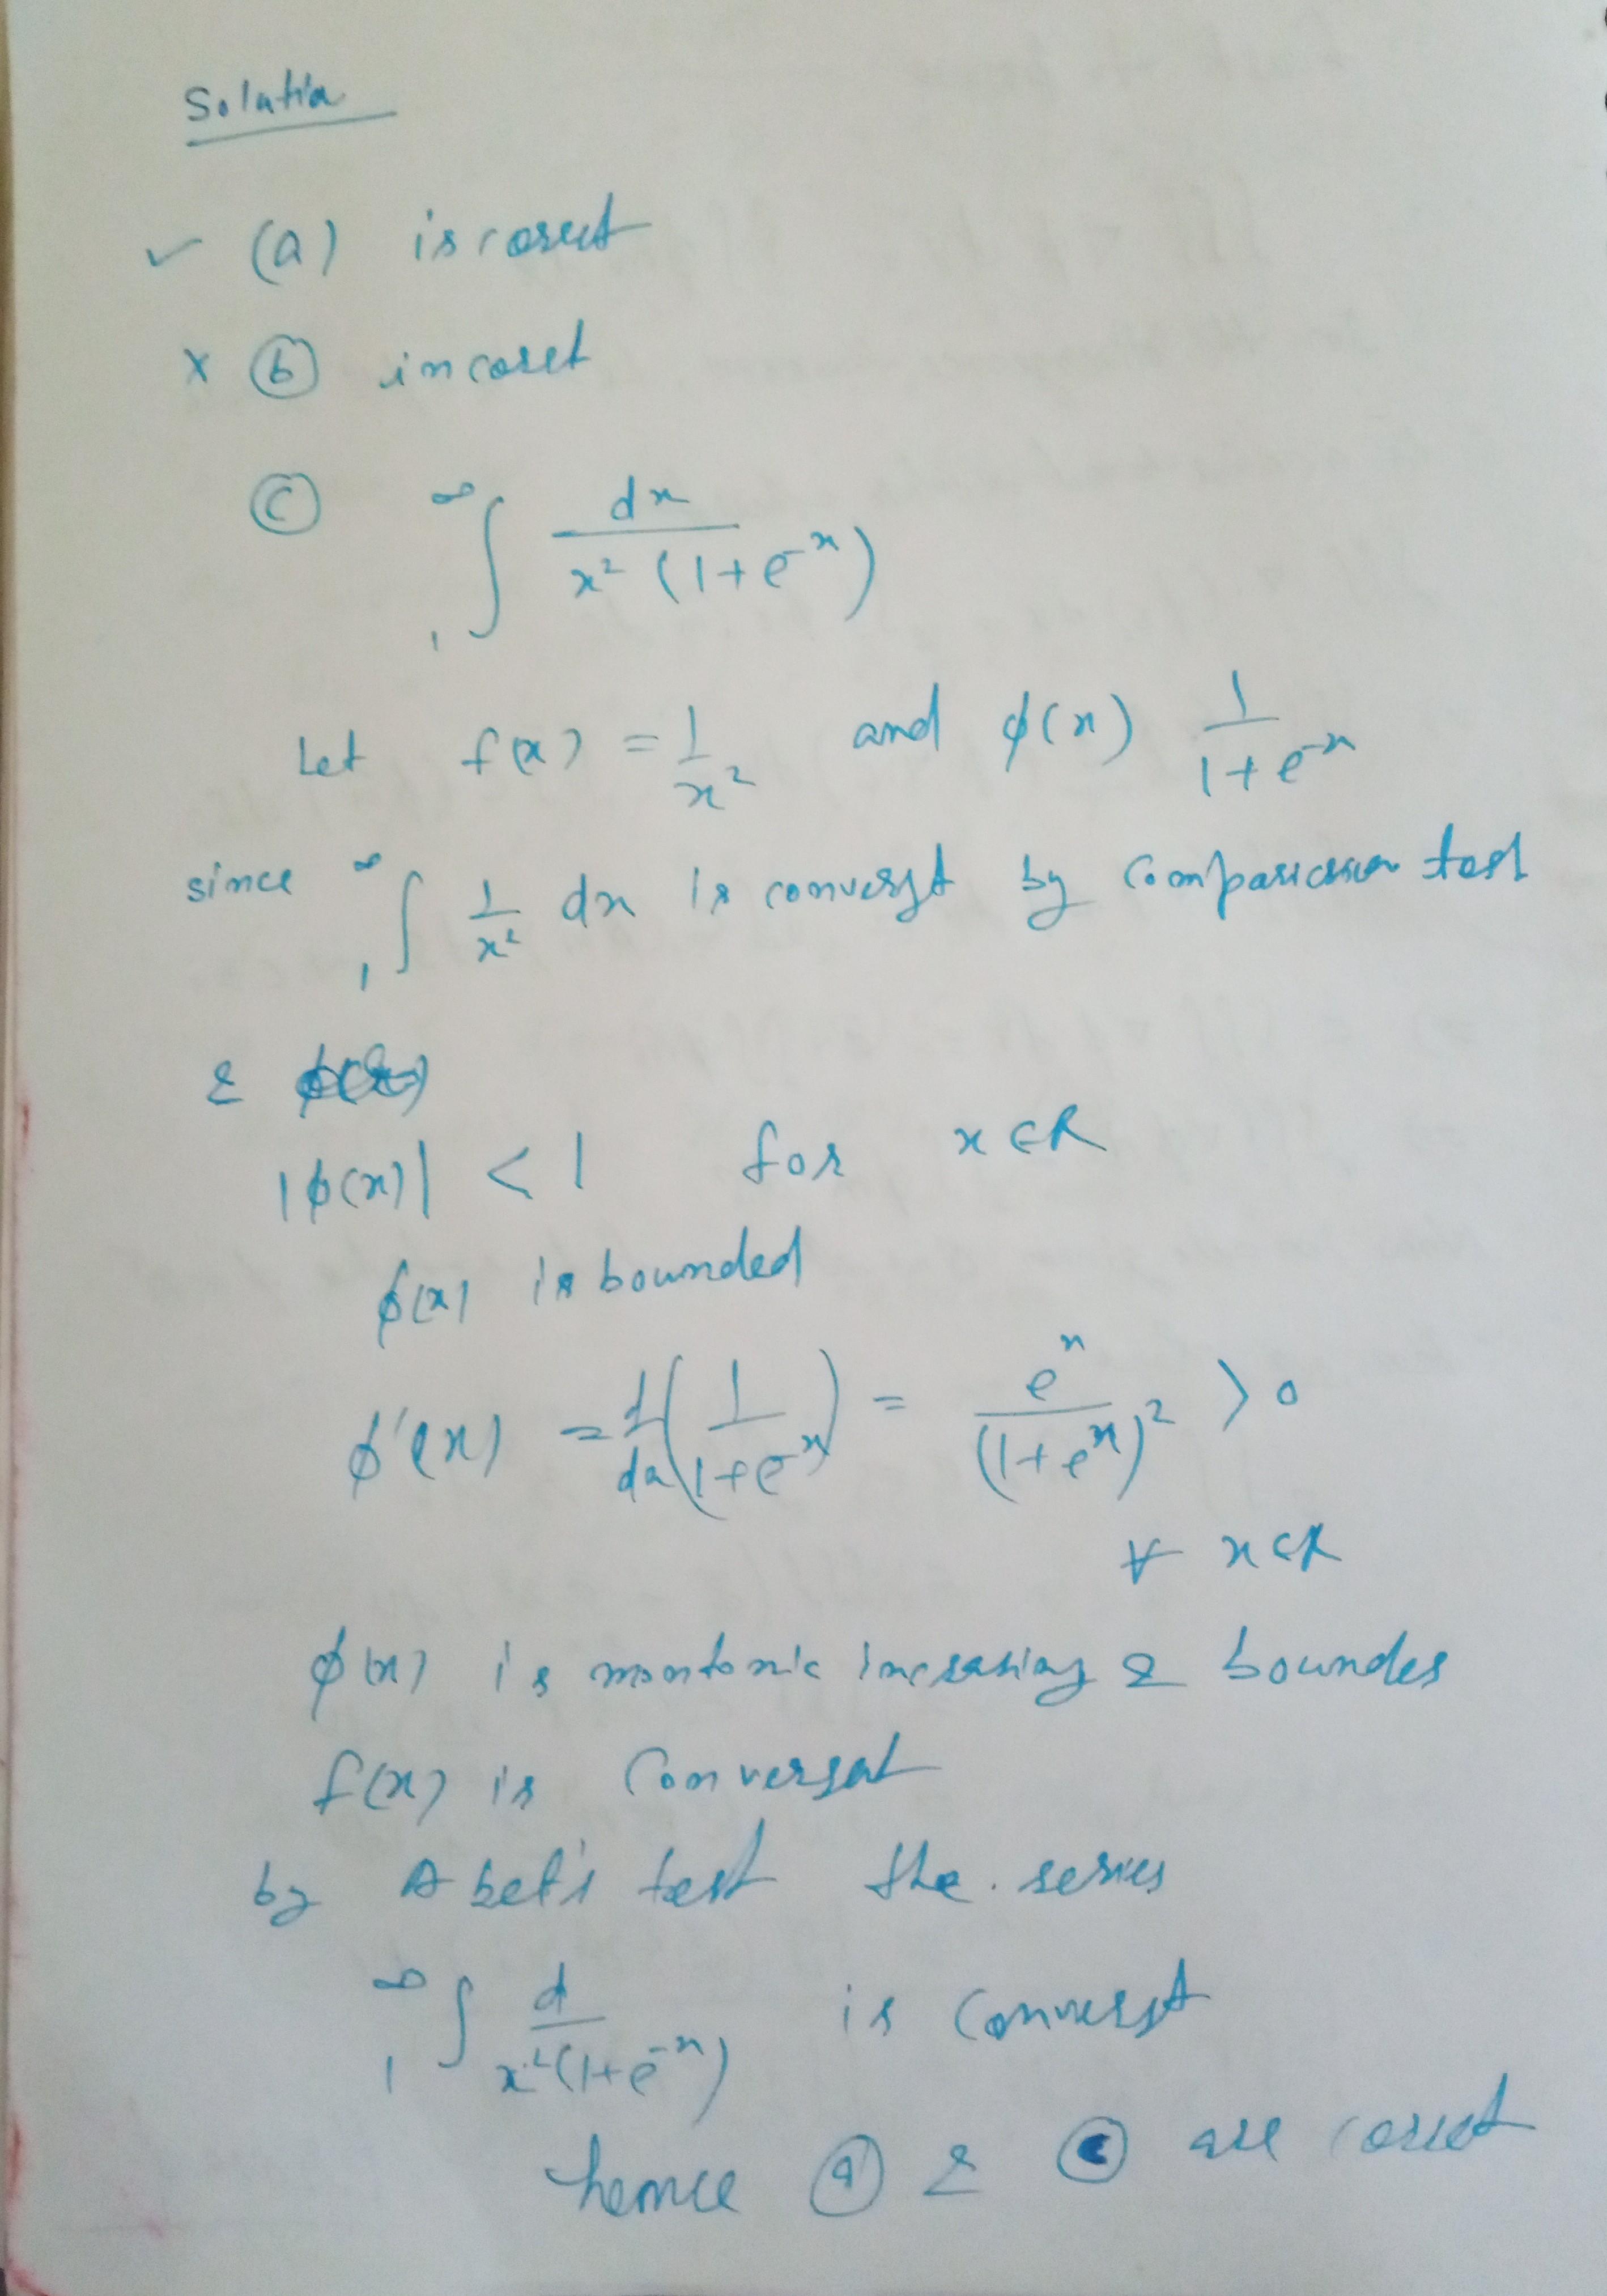 Solutin
✓ (a) is corect
× (b) incorect
(c) ∞ ∫ 1 dx / x² (1+e⁻ˣ)
Let f(x) = 1/x² and ϕ(x) 1/1+e⁻ˣ
since ∞ ∫ 1 1/x² dx is convergt by comparission test
&
|ϕ(x)| < 1 for x∈R
ϕ(x) is bounded
ϕ'(x) = d/dx (1/1+e⁻ˣ) = eˣ/(1+eˣ)² > 0
∀ x∈R
ϕ(x) is montonic incrasing & boundes
f(x) is Convergat
by Abel's test the. series
∞ ∫ 1 d / x²(1+e⁻ˣ) is Convergt
hence (a) & (c) are corect